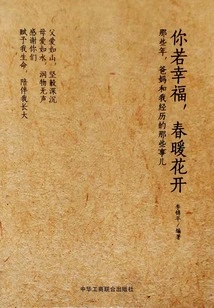 你若幸福，春暖花开
那些年，爸妈和我经历的那些事儿
李锦平／编著
父爱如山，坚毅深沉
母爱如水，润物无声
感谢你们
赋予我生命，陪伴我长大
中华工商联合出版社